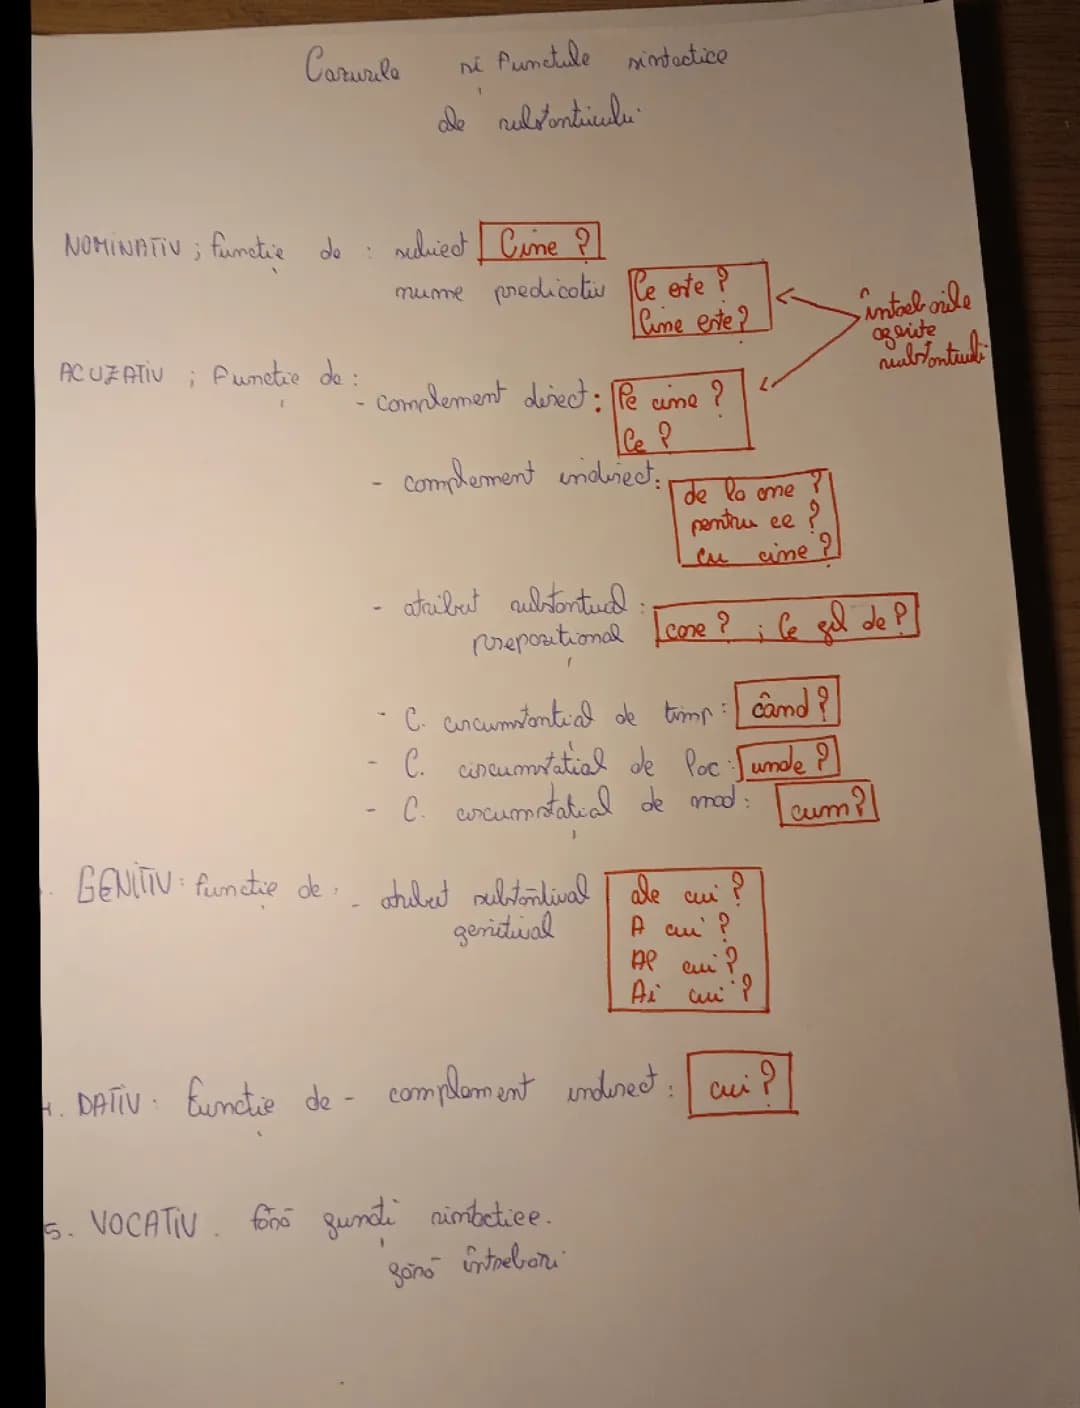 Cazurile și funcțiile sintactice
ale substantivului
NOMINATIV ; funcție de : subiect Cine ?
nume predicativ Ce este ?
Cine este ?
întrebările
substantivului
ACUZATIV ; funcție de :
- complement direct : Pe cine ?
Ce ?
- complement indirect : de la cine ?
pentru ce ?
cu cine ?
- atribut substantival :
prepozițional care ? ; Ce fel de ?
- C. circumstanțial de timp : când ?
- C. circumstațial de loc : unde ?
- C. circumstațial de mod : cum ?
GENITIV : funcție de : - atribut substantival
genitival
ale cui ?
A cui ?
Al cui ?
Ai cui ?
4. DATIV : funcție de - complement indirect : cui ?
5. VOCATIV . fără funcți sintactice.
fără întrebări